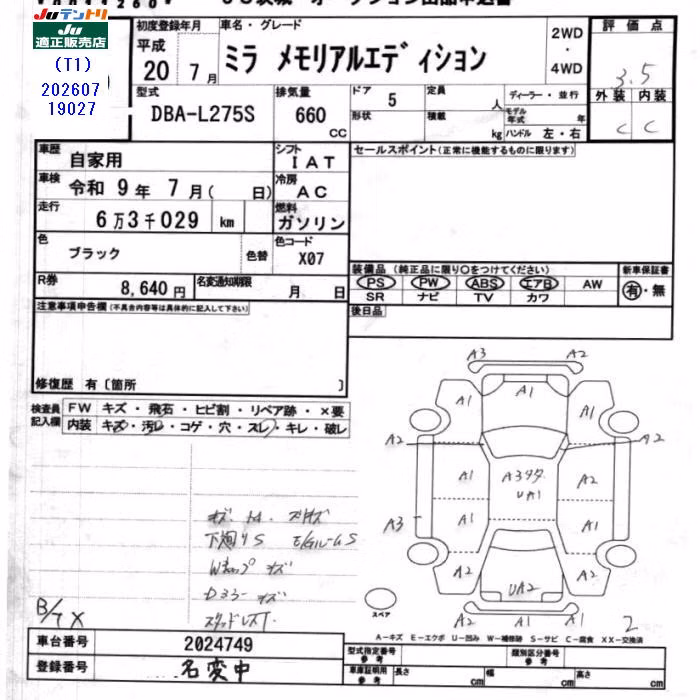 Juテントリ
Ju 適正販売店
(T1)
202607
19027
初度登録年月
平成
20 7月
車名・グレード
ミラ メモリアルエディション
2WD
・
4WD
評価点
3.5
外装 内装
C C
型式
DBA-L275S
排気量
660
CC
ドア 5
形状
定員 人
積載 kg
ディーラー・並行
モデル年式 年
ハンドル 左・右
車歴 自家用
シフト IAT
車検 令和 9年 7月( 日)
冷房 AC
走行 6万3千029 km
燃料 ガソリン
色 ブラック
色替
色コード X07
R券 8,640円
名変通知期限 月 日
セールスポイント(正常に機能するものに限ります)
装備品 (純正品に限り○をつけてください)
新車保証書
PS PW ABS エアB AW 有・無
SR ナビ TV カワ
後日品
注意事項申告欄(不具合内容等は具体的に記入して下さい)
修復歴 有〔箇所 〕
検査員記入欄
FW キズ・飛石・ヒビ割・リペア跡・×要
内装 キズ・汚レ・コゲ・穴・スレ・キレ・破レ
下廻りS
Wキャップ キズ
Dミラーキズ
スタッドレスT.
B/T X
A3 A2
A1
A1 A1
A2 A2
A3
A1 A1
A1 A1
UA1
A2 A2
UA2
A1 A1
スペア
2
A－キズ E－エクボ U－凹み W－補修跡 S－サビ C－腐食 XX－交換済
車台番号 2024749
登録番号 名変中
型式指定番号 参考
類別区分番号 参考
車庫証明用 参考
長さ cm
幅 cm
高さ cm